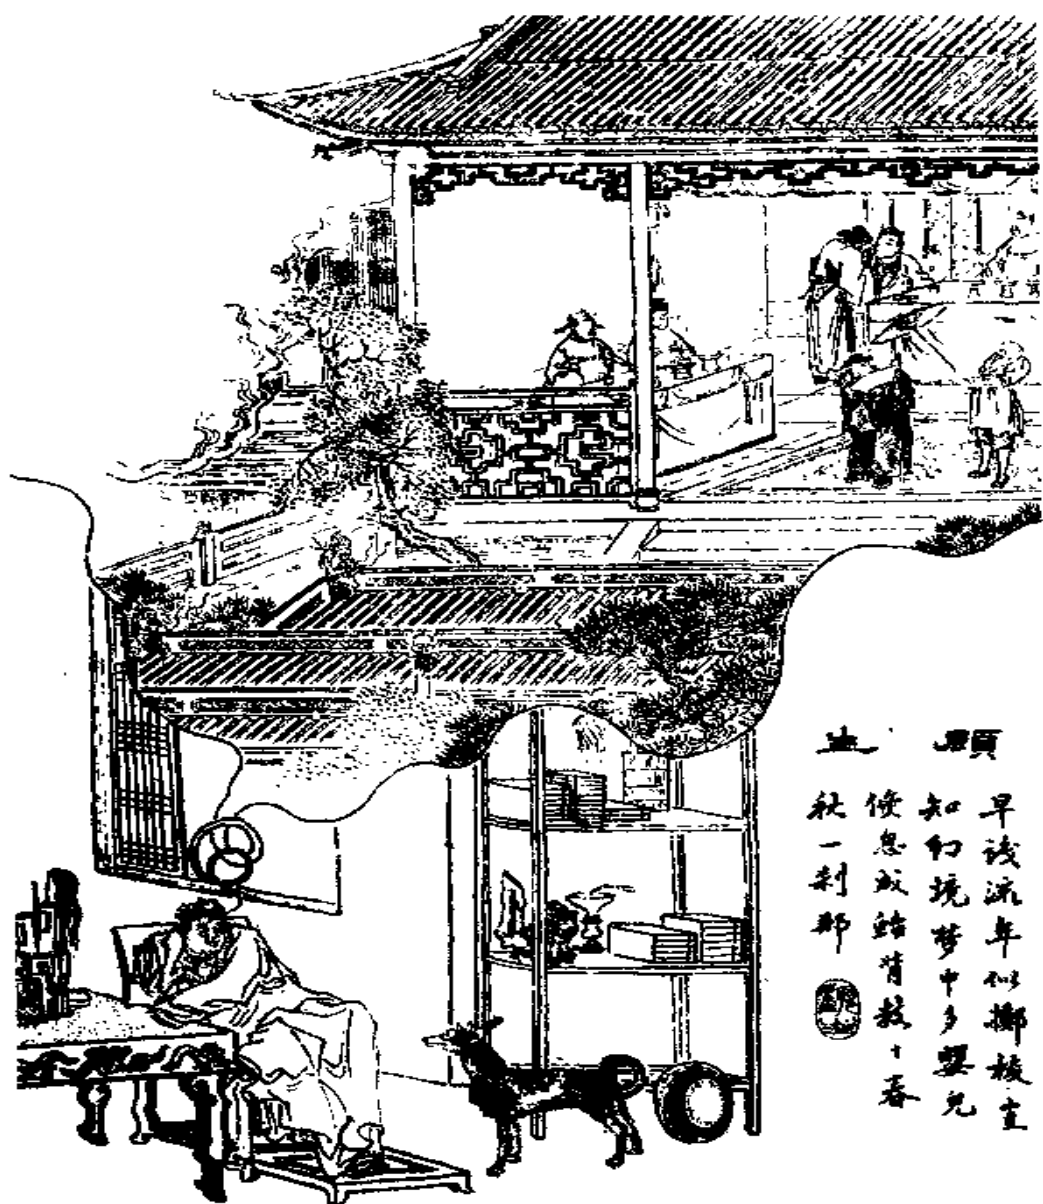 顧生
早識流年似擲梭豈
知幻境夢中多嬰兒
倏息成鮐背數十春
秋一剎那